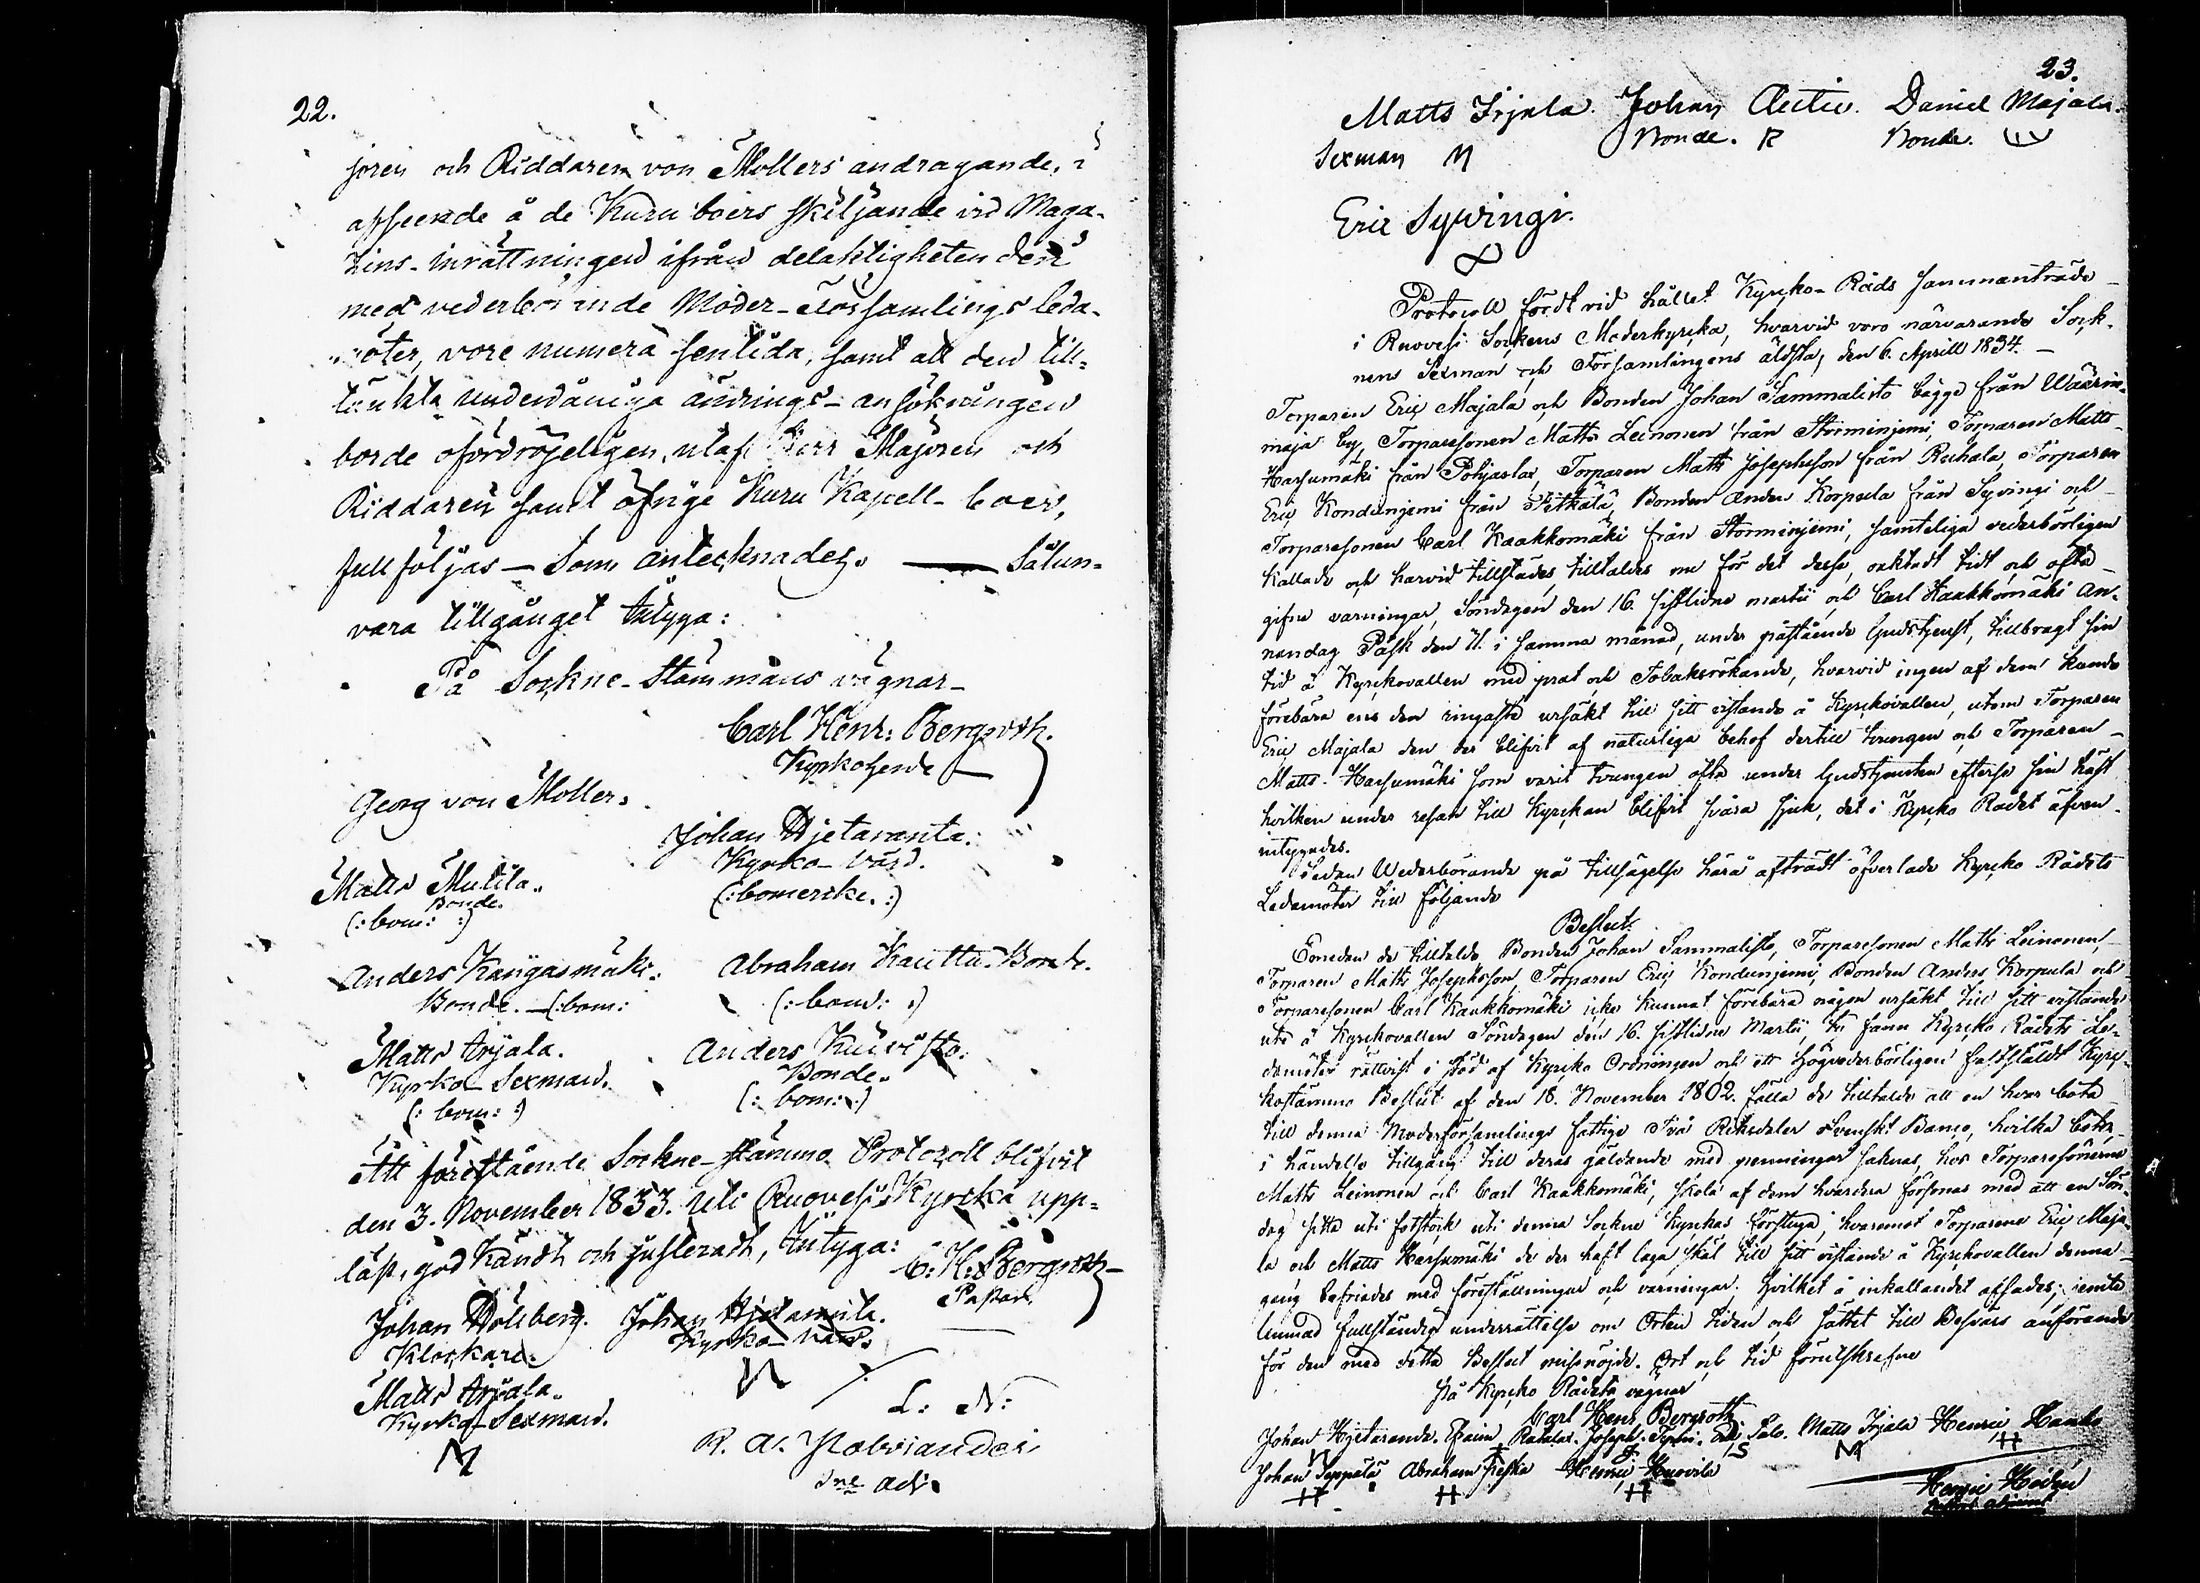 22.
joren och Riddaren von Mollers andragande, i
afseende å de Kuru boers skiljande vid Maga-
zins-inrättningen ifrån delaktigheten deri
med vederbörande Moder-Församlings leda-
möter, vore numera sentida, samt att den till-
tänkta underdåniga ändrings-ansökningen
borde ofördröjeligen, utaf Herr Majoren och
Riddaren samt öfrige Kuru Kapell-boer,
fullföljas — Som antecknades. — Sålun-
vara tillgånget intyga:
På Sockne-Stämmans vägnar-
Carl Henr: Bergroth.
Kyrkoherde
Georg von Moller.
Johan Hjetaranta.
Kyrko-Värd.
(:bomerike.:)
Matts Mutila.
Bonde.
(:bom: :)
Anders Kangasmäki. Abraham Kauttu. Bonde.
Bonde. — (:bom: (:bom: :)
Matts Arjala. Anders Kuivisto.
Kyrko-Sexman. Bonde.
(: bom: :) (: bom: :)
Att förestående Sockne-stämmo Protocoll blifvit
den 3. November 1833. uti Ruovesi Kyrcka upp-
läst, godkändt och justeradt, intyga:
C: H: Bergroth
Pastor.
Johan Dölberg. Johan Hjetaranta.
Klockare. Kyrko-Värd.
Matts Arjala.
Kyrko-Sexman.
L: N:
23.
Matts Irjala. Johan Autio. Daniel Majala.
Sexman M Bonde. R Bonde.
Eric Sywingi.
Protocoll fördt vid hållet Kyrcko-Råds sammanträde
i Ruovesi Sockens Moderkyrcka, hvarvid voro närvarande Sock-
nens Sexman och Församlingens äldsta, den 6. Aprill 1834. —
Torparen Eric Majala och Bonden Johan Sammalisto bägge från Wäärin-
maja by, Torparesonen Matts Leinonen från Storminjemi, Torparen Matts
Harjumäki från Pohjaslax, Torparen Matts Josephsson från Ruhala, Torparen
Eric Kondunjemi från Pitkälä, Bonden Anders Korpula från Syvingi och
Torparesonen Carl Kaakkomäki från Storminjemi, samteliga vederbörligen
kallade och harvid tillstädes, tilltaldes om för det desse, oaktadt tidt och ofta
gifne varningar, Söndagen den 16. sistlidne martii och Carl Kaakkomäki An-
nandag Påsk den 31. i samma månad, under påstående Gudstjenst, tillbragt sin
tid å Kyrckovallen med prat och Tobaksrökande, hvarvid ingen af dem kunde
förebära ens den ringaste ursäkt till sitt vistande å Kyrckovallen, utom Torparen
Eric Majala den der blifvit af naturliga behof dertill tvungen och Torparen
Matts Harjumäki som varit tvungen ofta under Gudstjensten efterse sin häst
hvilken under resan till kyrckan blifvit svåra sjuk, det i Kyrcko Rådet äfven
intygades.
Sedan Wederbörande på tillsägelse härå afträdt öfverlade Kyrcko Rådets
Ledamöter till följande
Beslut:
Emedan de tilltalde, Bonden Johan Sammalisto, Torparesonen Matts Leinonen,
Torparen Matts Josephsson, Torparen Eric Kondunjemi, Bonden Anders Korpula och
Torparesonen Carl Kaakkomäki icke kunnat förebära någon ursäkt till sitt vistande
ute å Kyrckovallen Söndagen den 16. sistlidne Martii, ty fann Kyrcko Rådets Le-
damöter rättvist i stöd af Kyrcko Ordningen och ett högvederbörligen fastställdt Kyrc-
kostämmo Beslut af den 18. November 1802. fälla de tilltalde att en hvar böta
till denna Moderförsamlings fattige Två Riksdaler Svenskt Banco, hvilka böter
i händelse tillgång till deras gäldande med penningar saknas, hos Torparesönerne
Matts Leinonen och Carl Kaakkomäki, skola af dem hvardera försonas med att en Sön-
dag sitta uti fotstock uti denna Sockne kyrckas förstuga, hvaremot Torparena Eric Maja-
la och Matts Harjumäki de der haft laga skäl till sitt vistande å Kyrckovallen denna
gång befriades med föreställningar och varningar, hvilket å inkallandet afsades; jemte
lemnad fullständig underrättelse om Orten tiden och sättet till Besvärs anförande
för den med detta Beslut missnöjde. Ort och tid förutskrefne
På Kyrcko Rådets vägnar
Carl Henr. Bergroth
Matts Irjala
M
Johan Seppälä Abraham
H H H